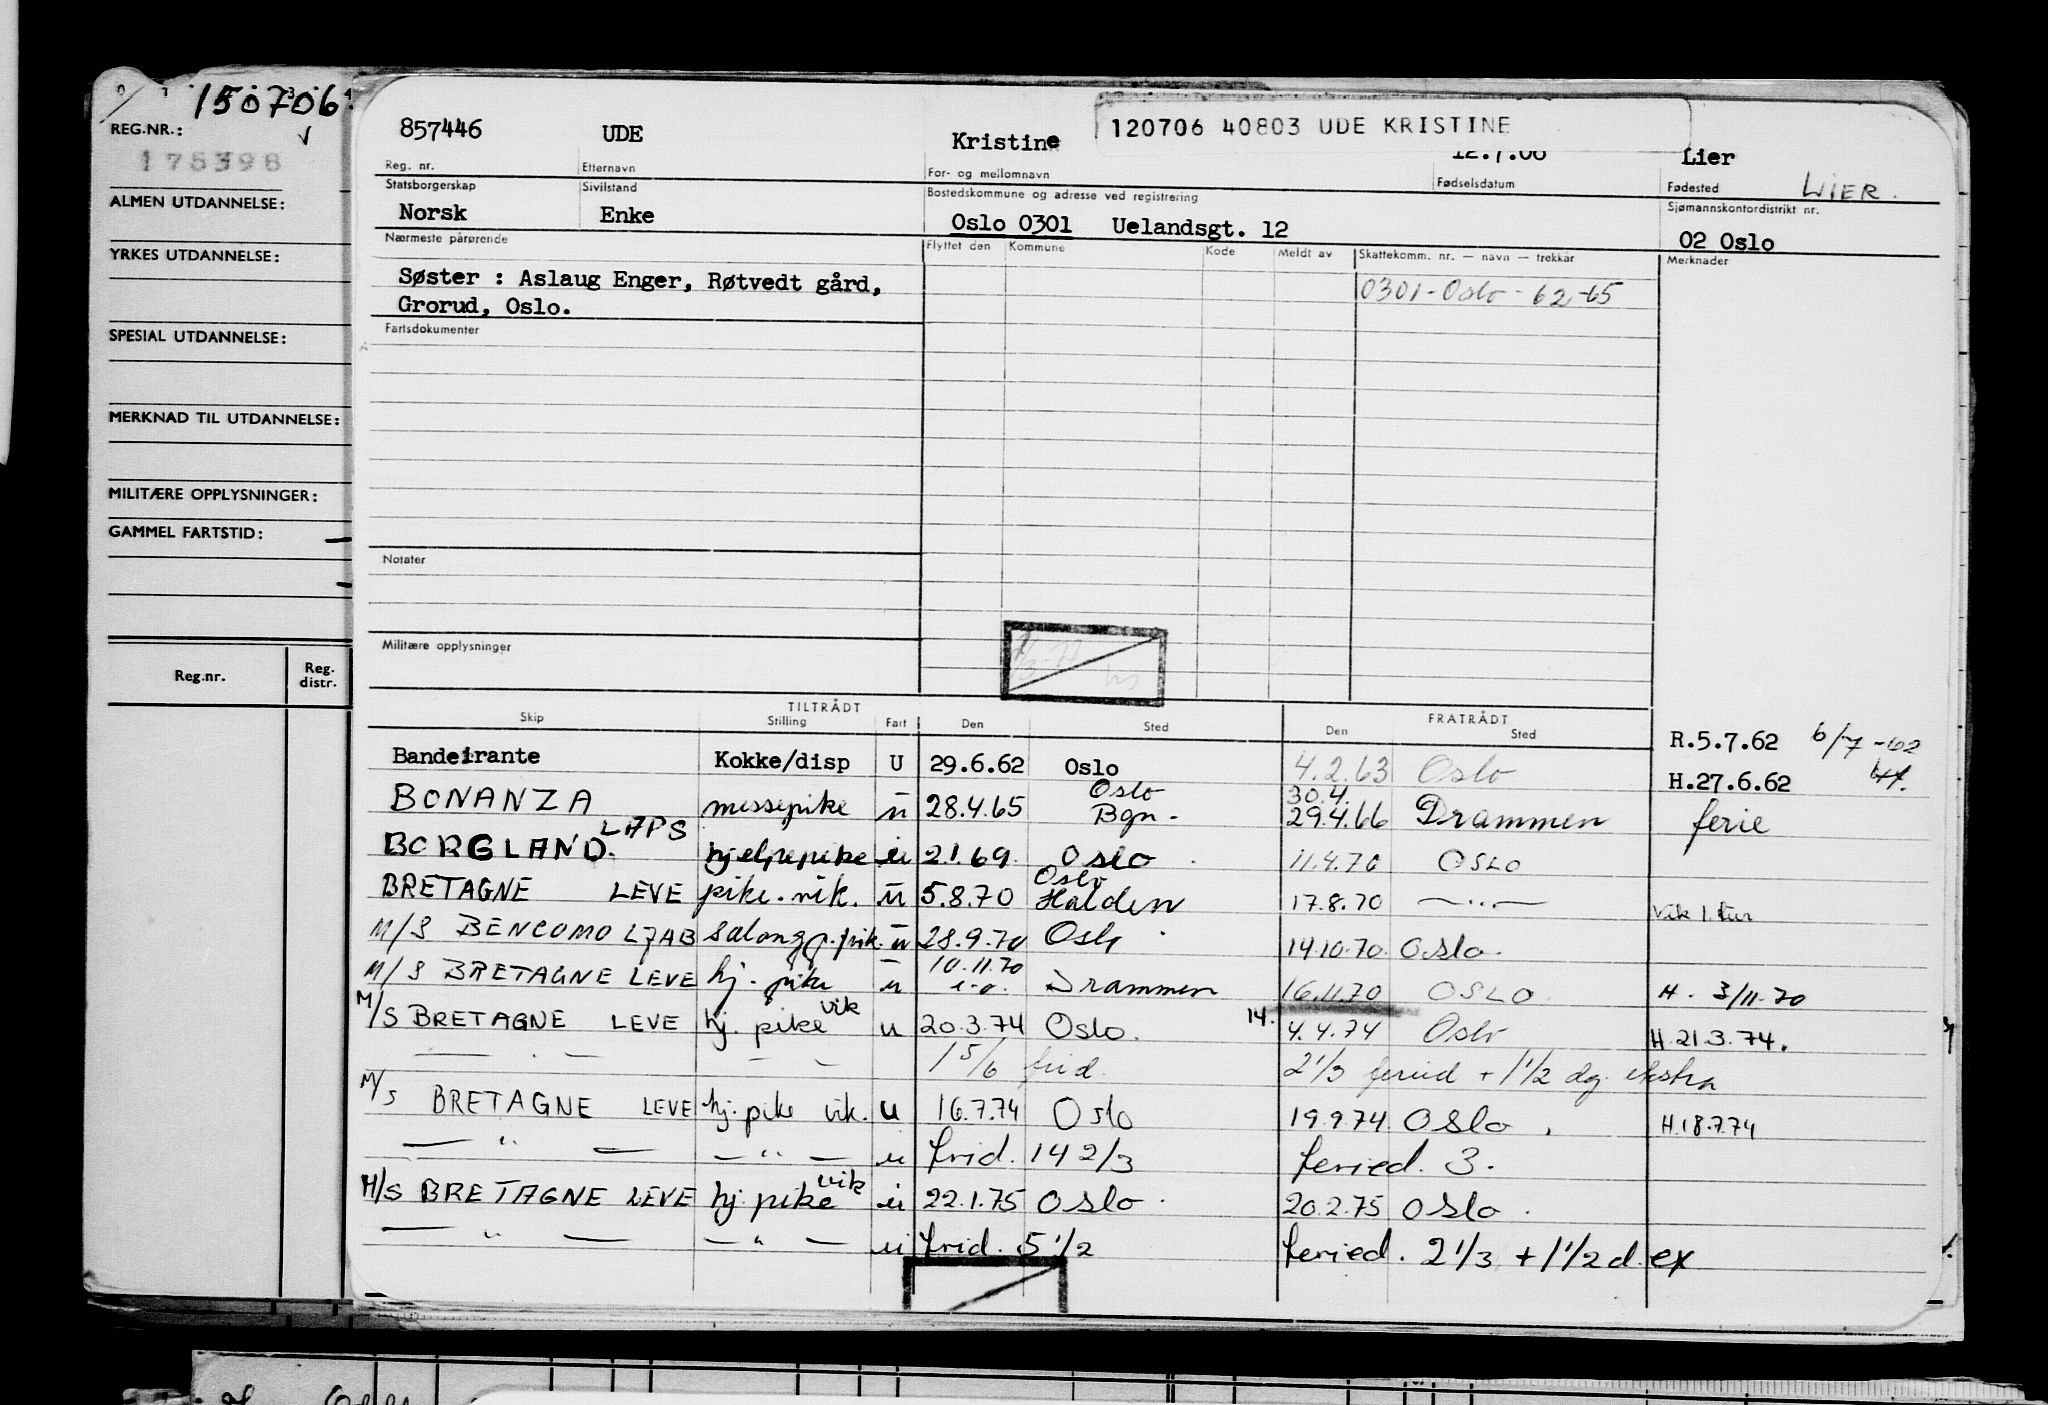 150706
REG.NR.:
175398
ALMEN UTDANNELSE:
YRKES UTDANNELSE:
SPESIAL UTDANNELSE:
MERKNAD TIL UTDANNELSE:
MILITÆRE OPPLYSNINGER:
GAMMEL FARTSTID:
Reg.nr. Reg. distr.
857446 UDE Kristine 120706 40803 UDE KRISTINE
12.7.06 Lier
Reg. nr. Etternavn For- og mellomnavn Fødselsdatum Fødested LIER.
Statsborgerskap Sivilstand Bostedskommune og adresse ved registrering Sjømannskontordistrikt nr.
Norsk Enke Oslo 0301 Uelandsgt. 12 02 Oslo
Nærmeste pårørende Flyttet den Kommune Kode Meldt av Skattekomm. nr. — navn — trekkår Merknader
Søster : Aslaug Enger, Røtvedt gård, 0301-Oslo-62-65
Grorud, Oslo.
Fartsdokumenter
Notater
Militære opplysninger
TILTRÅDT FRATRÅDT
Skip Stilling Fart Den Sted Den Sted
Bandeirante Kokke/disp U 29.6.62 Oslo 4.2.63 Oslo R.5.7.62 6/7-62
H.27.6.62
Oslo 30.4.
BONANZA messepike u 28.4.65 Bgn. 29.4.66 Drammen ferie
BORGLAND. LAPS hjelpepike u 2.1.69. Oslo 11.4.70 OSLO
Oslo
BRETAGNE LEVE pike.vik. u 5.8.70 Halden 17.8.70 — " — Vik 1. tur
M/S BENCOMO LJAB salongp.pik. u 28.9.70 Oslo 14.10.70. Oslo.
10.11.70
M/S BRETAGNE LEVE hj. pike u Drammen 16.11.70 OSLO. H. 3/11-70
M/S BRETAGNE LEVE hj. pike vik u 20.3.74 Oslo. 14. 4.4.74 Oslo H.21.3.74.
1 5/6 frid. 2 1/3 feried + 1 1/2 dg. ekstra
M/S BRETAGNE LEVE hj. pike vik. u 16.7.74 Oslo 19.9.74 Oslo. H.18.7.74
— " — — " — u frid. 14 2/3 feried. 3.
M/S BRETAGNE LEVE hj. pike vik u 22.1.75 Oslo. 20.2.75 Oslo.
— " — — " — u frid. 5 1/2 feried. 2 1/3 + 1 1/2 d. ex